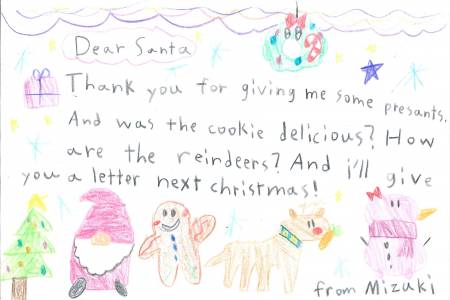 Dear Santa
Thank you for giving me some presants.
And was the cookie delicious? How
are the reindeers? And i'll give
you a letter next christmas!
from Mizuki